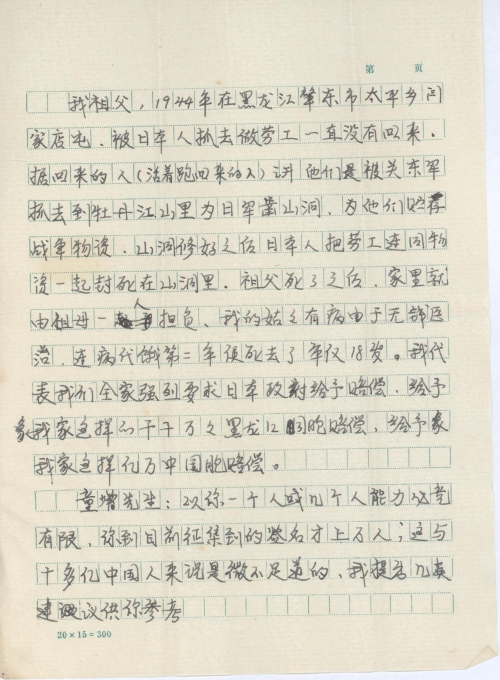 第 页
我祖父，1944年在黑龙江肇东市太平乡闫
家店屯、被日本人抓去做劳工一直没有回来．
据回来的人（活着跑回来的人）讲他们是被关东军
抓去到牡丹江山里为日军凿山洞，为他们贮存
战争物资、山洞修好之后日本人把劳工连同物
资一起封死在山洞里．祖父死了之后，家里就
由祖母一人担负、我的姑姑有病由于无钱医
治，连病代饿第二年便死去了年仅18岁。我代
表我们全家强烈要求日本政府给予赔偿．给予
象我家这样的千千万万黑龙江同胞赔偿，给予象
我家这样亿万中国同胞赔偿。
童增先生：以你一个人或几个人能力必竟
有限，你到目前征集到的签名才上万人；这与
十多亿中国人来说是微不足道的，我提若几点
建议供你参考
20×15=300